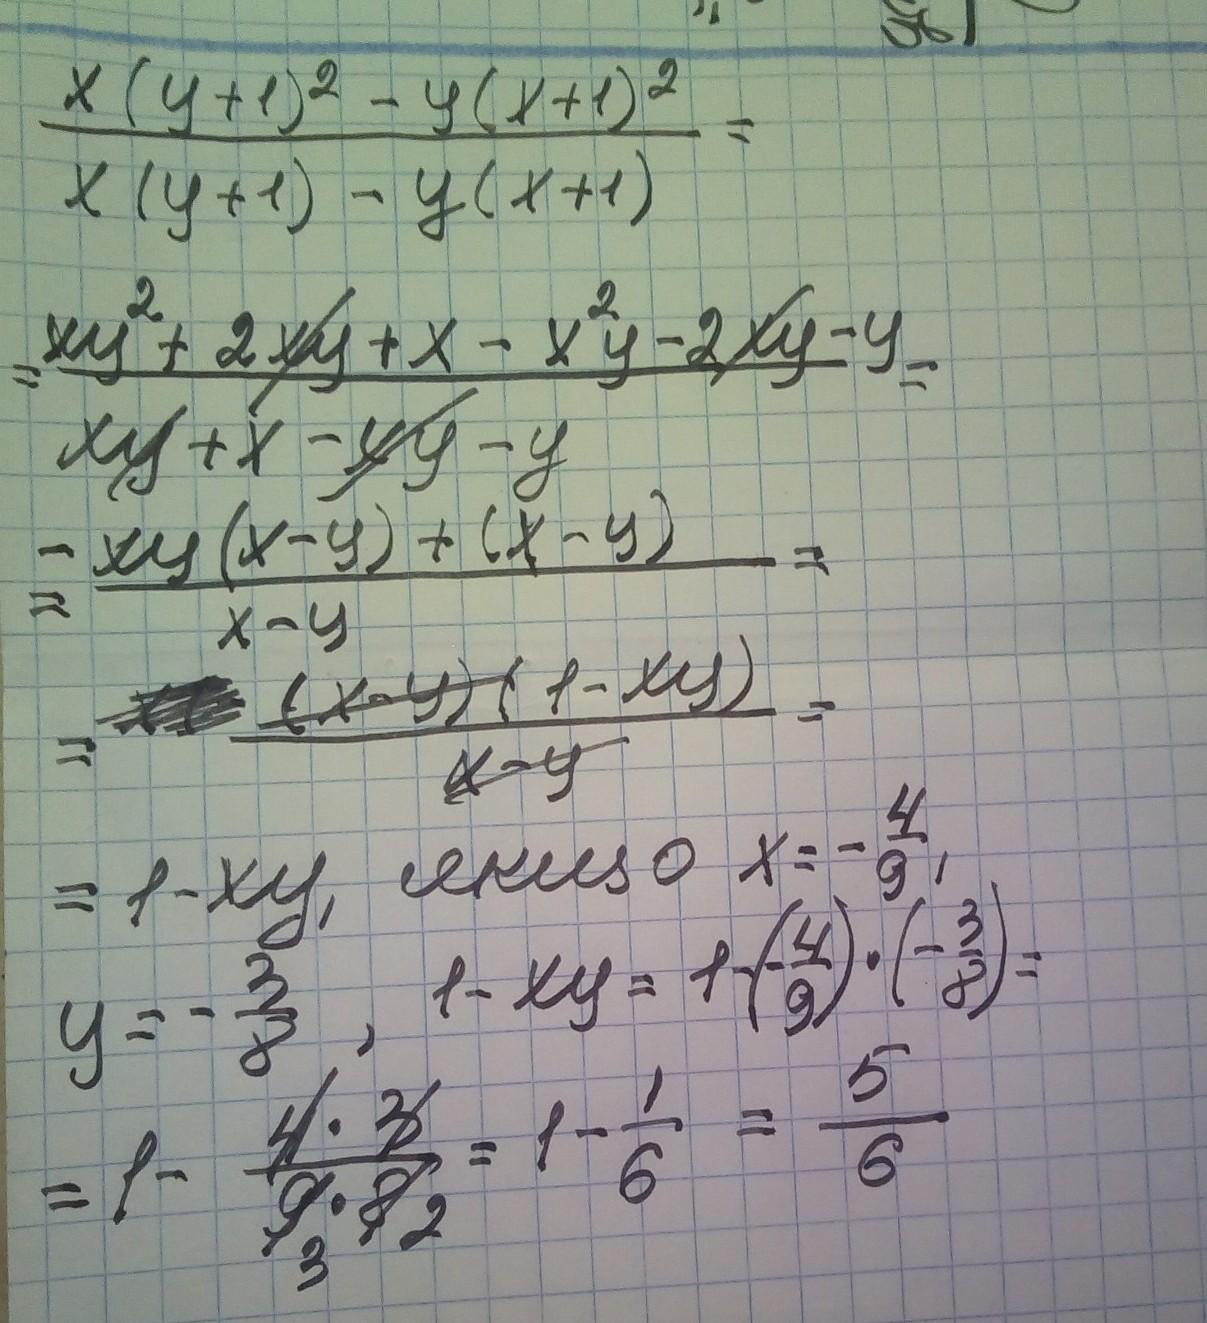 x(y+1)² - y(x+1)² =
x(y+1) - y(x+1)
= xy² + 2xy + x - x²y - 2xy - y =
xy + x - xy - y
= -xy(x-y) + (x-y) =
x-y
= (x-y)(1-xy) =
x-y
= 1-xy, якщо x = -4/9,
y = -3/8, 1-xy = 1-(-4/9)·(-3/8) =
= 1 - 4·3/9·8 3 2 = 1 - 1/6 = 5/6